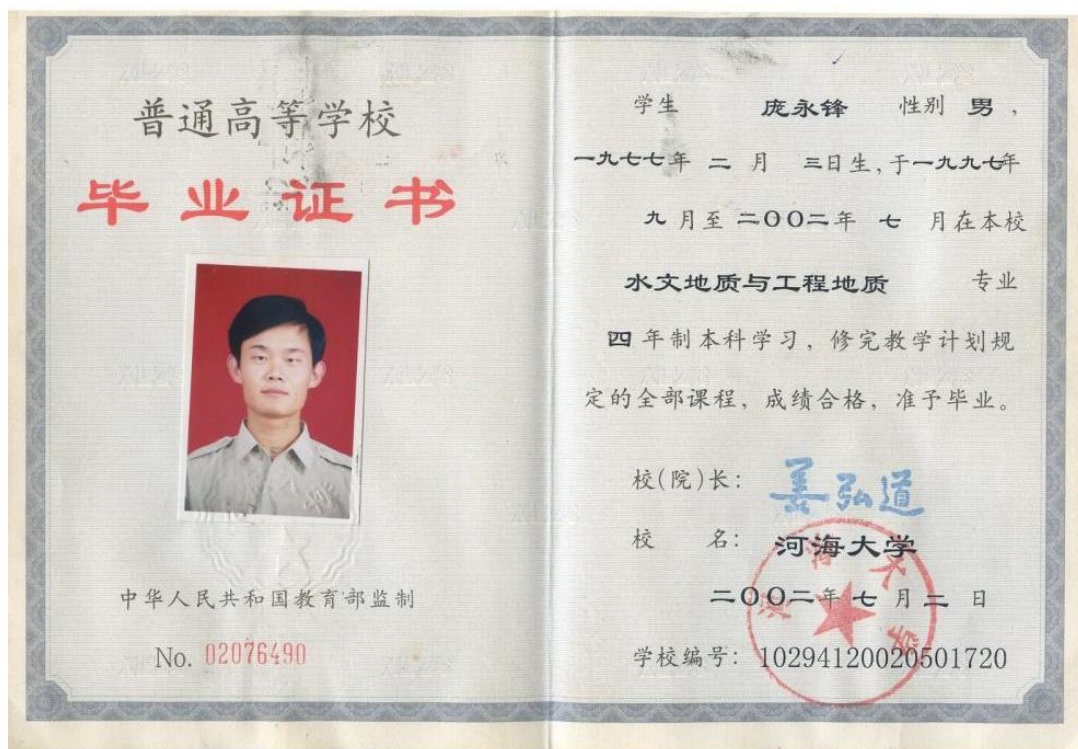 普通高等学校
毕业证书
中华人民共和国教育部监制
No. 02076490
学生 庞永锋 性别 男，
一九七七年 二 月 三日生，于一九九七年
九 月至 二〇〇二年 七 月在本校
水文地质与工程地质 专业
四 年制本科学习，修完教学计划规
定的全部课程，成绩合格，准予毕业。
校(院)长：姜弘道
校 名：河海大学
二〇〇二年 七 月 二 日
学校编号：10294120020501720
河海大学